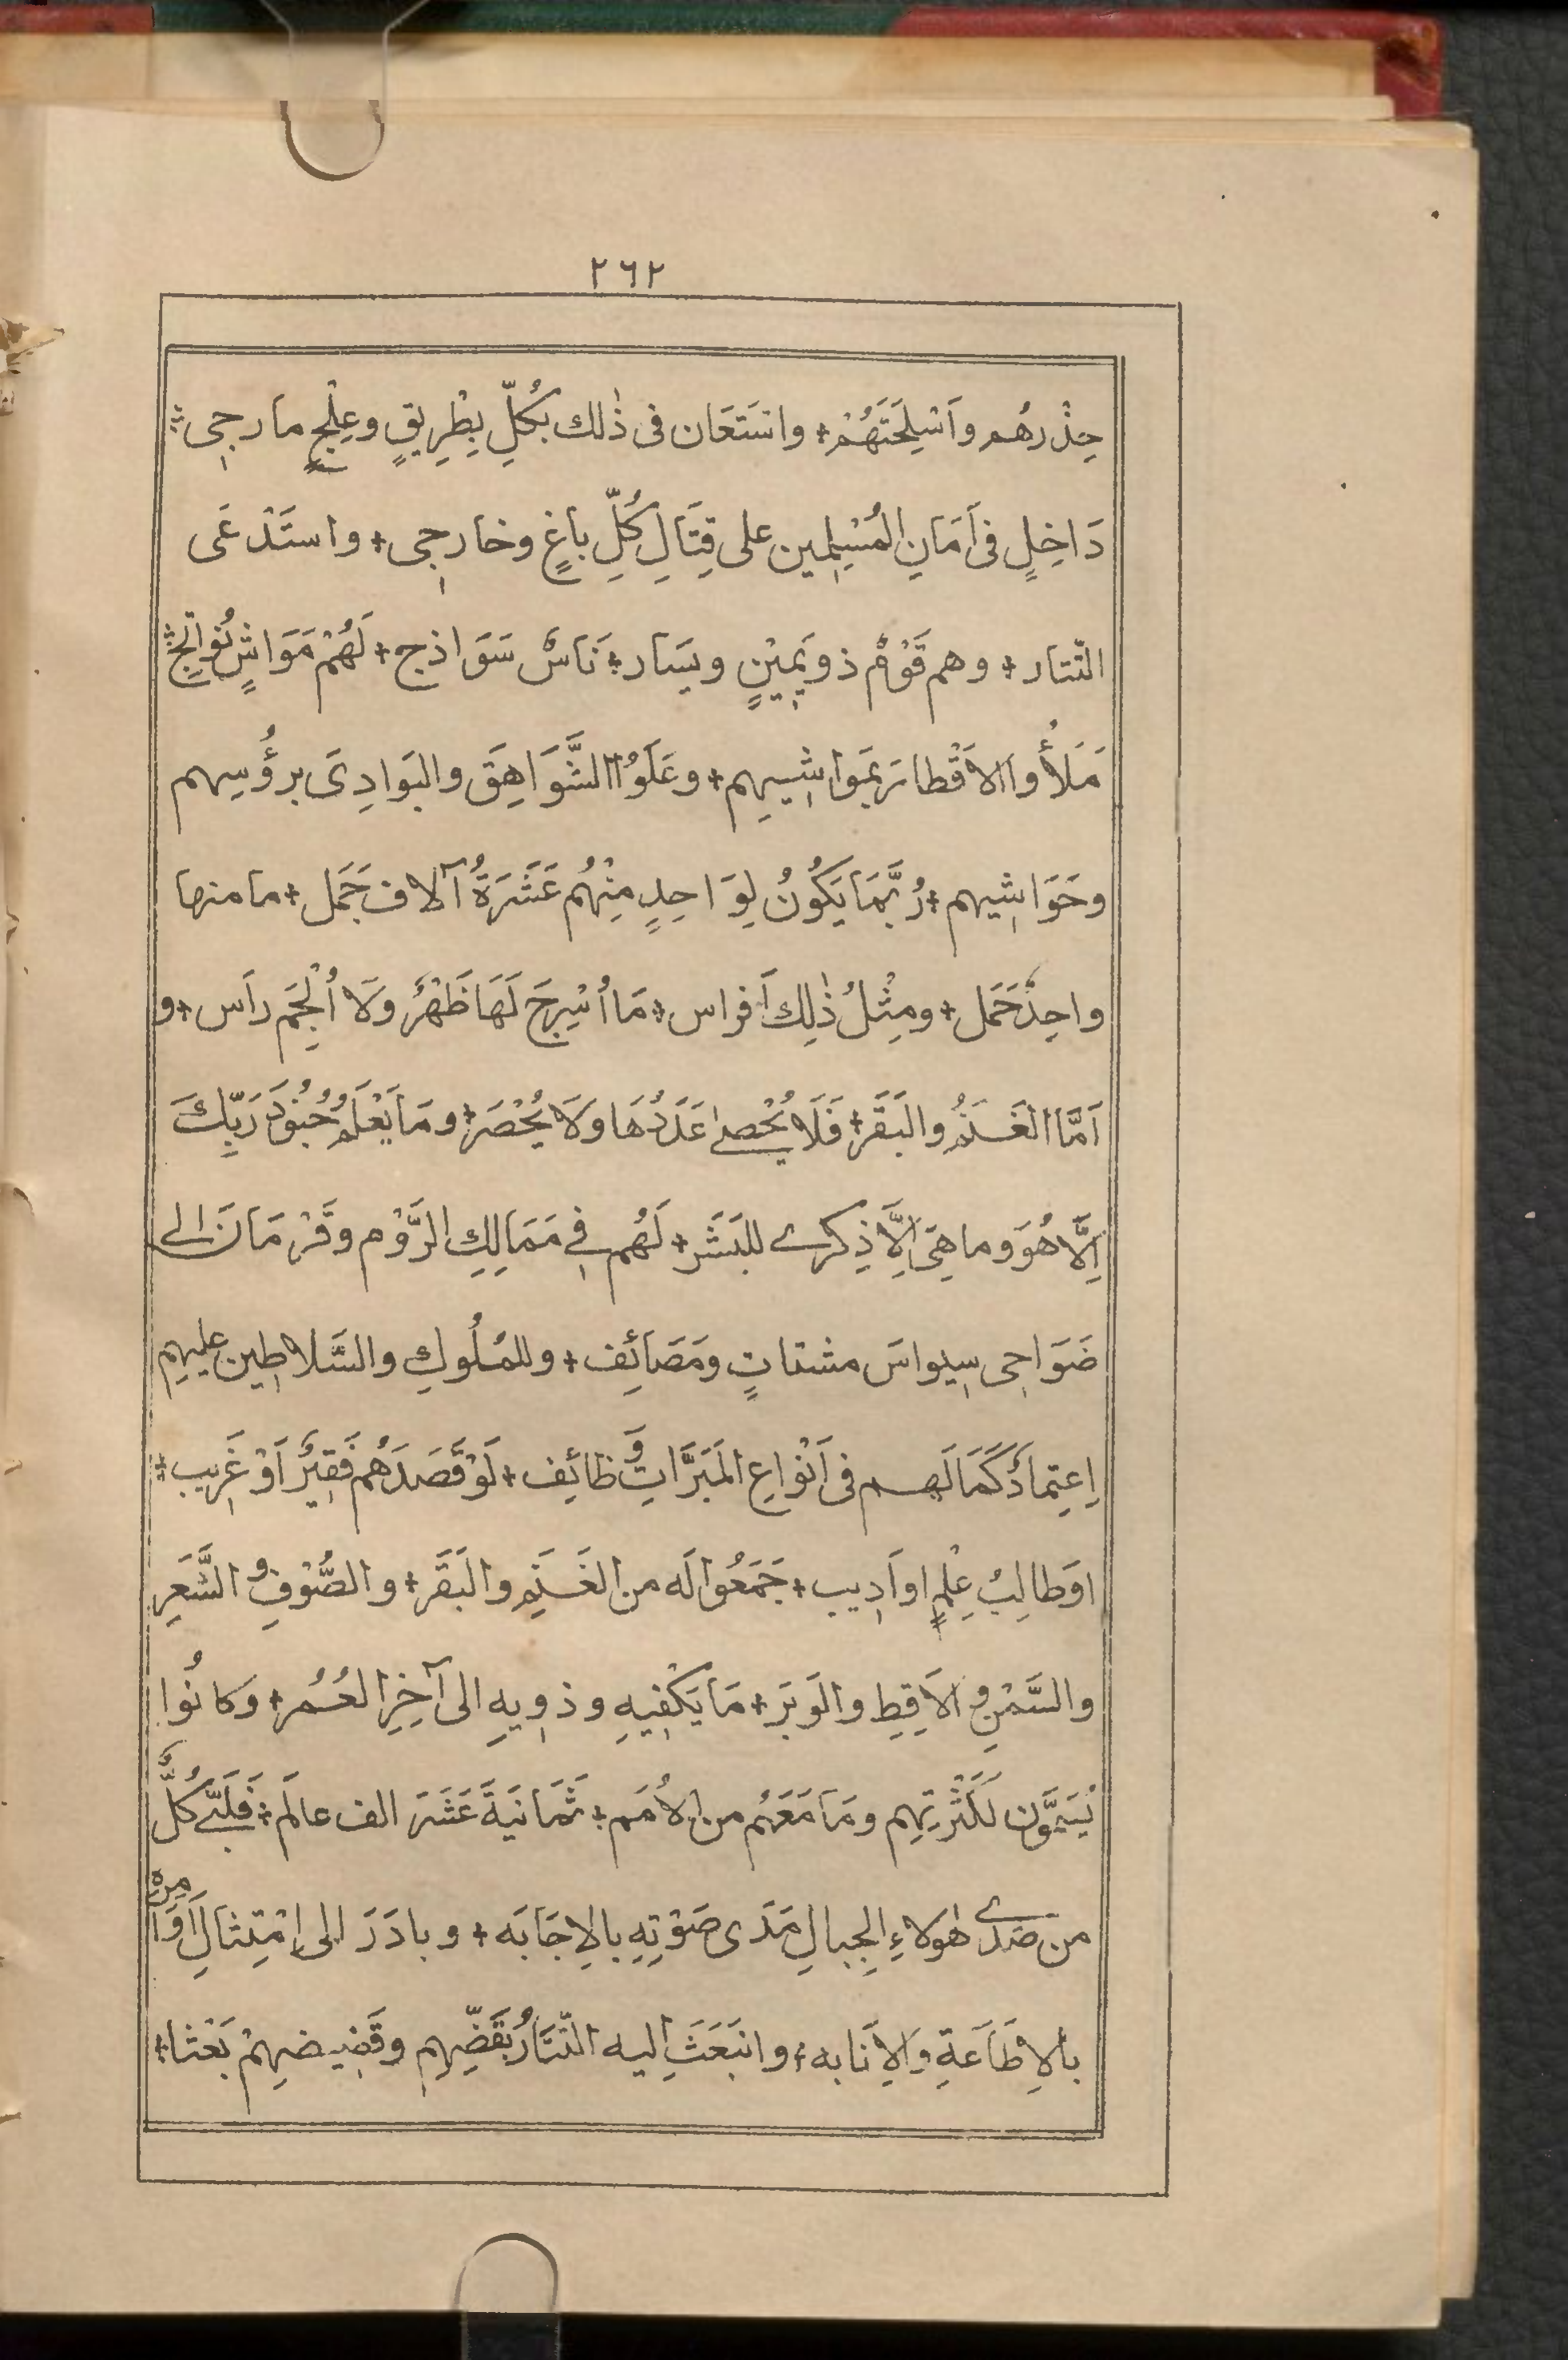 ٢٦٢
حِذْرهُم واَسْلِحَتَهُمْ + وانستَعَان فى ذٰلك بكُلِّ بِطْرِيقٍ وعِلْجٍ مارجى ÷
دَاخِلٍ فى اَمَانِ المُسْلِمين على قِتَالِ كُلِّ باغٍ وخارِجى + واستَدْعَى
التّتار + وهم قَوْمٌ ذو يَمِيْنٍ ويَسَار + نَاسٌ سَوَاذج + لَهُمْ مَوَاشٍ نُوَاتج ÷
مَلَأُوا الاقْطارَ بمَواشِيهِم + وعَلَوُا الشَّوَاهِقَ والبَوادِىَ برؤُسِهم
وحَوَاشِيهم + رُبَّمَا يَكُونُ لِوَاحِدٍ مِنْهُم عَشَرَةُ آلاف جَمَل + مامنها
واحِدٌ حَمَل + ومِثْلُ ذٰلِك اَفراس + مَا اُسْرِجَ لَهَا ظَهْرٌ وَلَا اُلْجِمَ رَاَس + و
اَمَّا الغَنَمُ والبَقَر + فَلَا يُحْصٰى عَدَدُهَا وَلَا يُحْصَر + ومَا يَعْلَمُ جُنُوَد رَبِّكَ
اِلَّا هُوَ وما هِىَ اِلَّا ذِكرے للبَشَر + لَهُم فِے مَمَالِكِ الرَّوْم وقَرْمَانَ الى
ضَوَاحِى سِيواسَ مشتاتٍ ومَصَائِف + وللمُلُوكِ والسَّلاطِين عليهِم
اِعتِمادٌ كَمَا لَهم فى اَنْوَاعِ المَبَرَّاتِ وَظائِف + لَوْ قَصَدَهُم فَقِيْرٌ اَوْ غَرِيب ÷
اوَطالِبُ عِلْمٍ او اَدِيب + جَمَعُوا لَه من الغَنَمِ والبَقَر + والصُّوْفِ و الشَّعَرِ
والسَّمْنِ و الاَقِطِ والوَبَر + مَا يَكْفِيهِ وذوِيهِ الى آخِرِ العُمر + وَكانُوا
يُسَمَّوْن لكَثْرتِهِم ومَا مَعَهُم من الاُمَم + ثَمَانيَةَ عَشَرَ الف عالَم + فَلَبّٰے كُلٌّ
من صَدٰے هٰولاءِ الجِبالِ مَدَى صَوْتِهِ بالاِجَابَه + وبادَرَ الى اِمْتِثالِ اَوَامره
بالاِطَاعَةِ وَالاِنَابه + وانبَعَثَ اِليه التَّتَارُ بقَضِّهِم وقَضِيضِهِمْ بَعْثا ÷